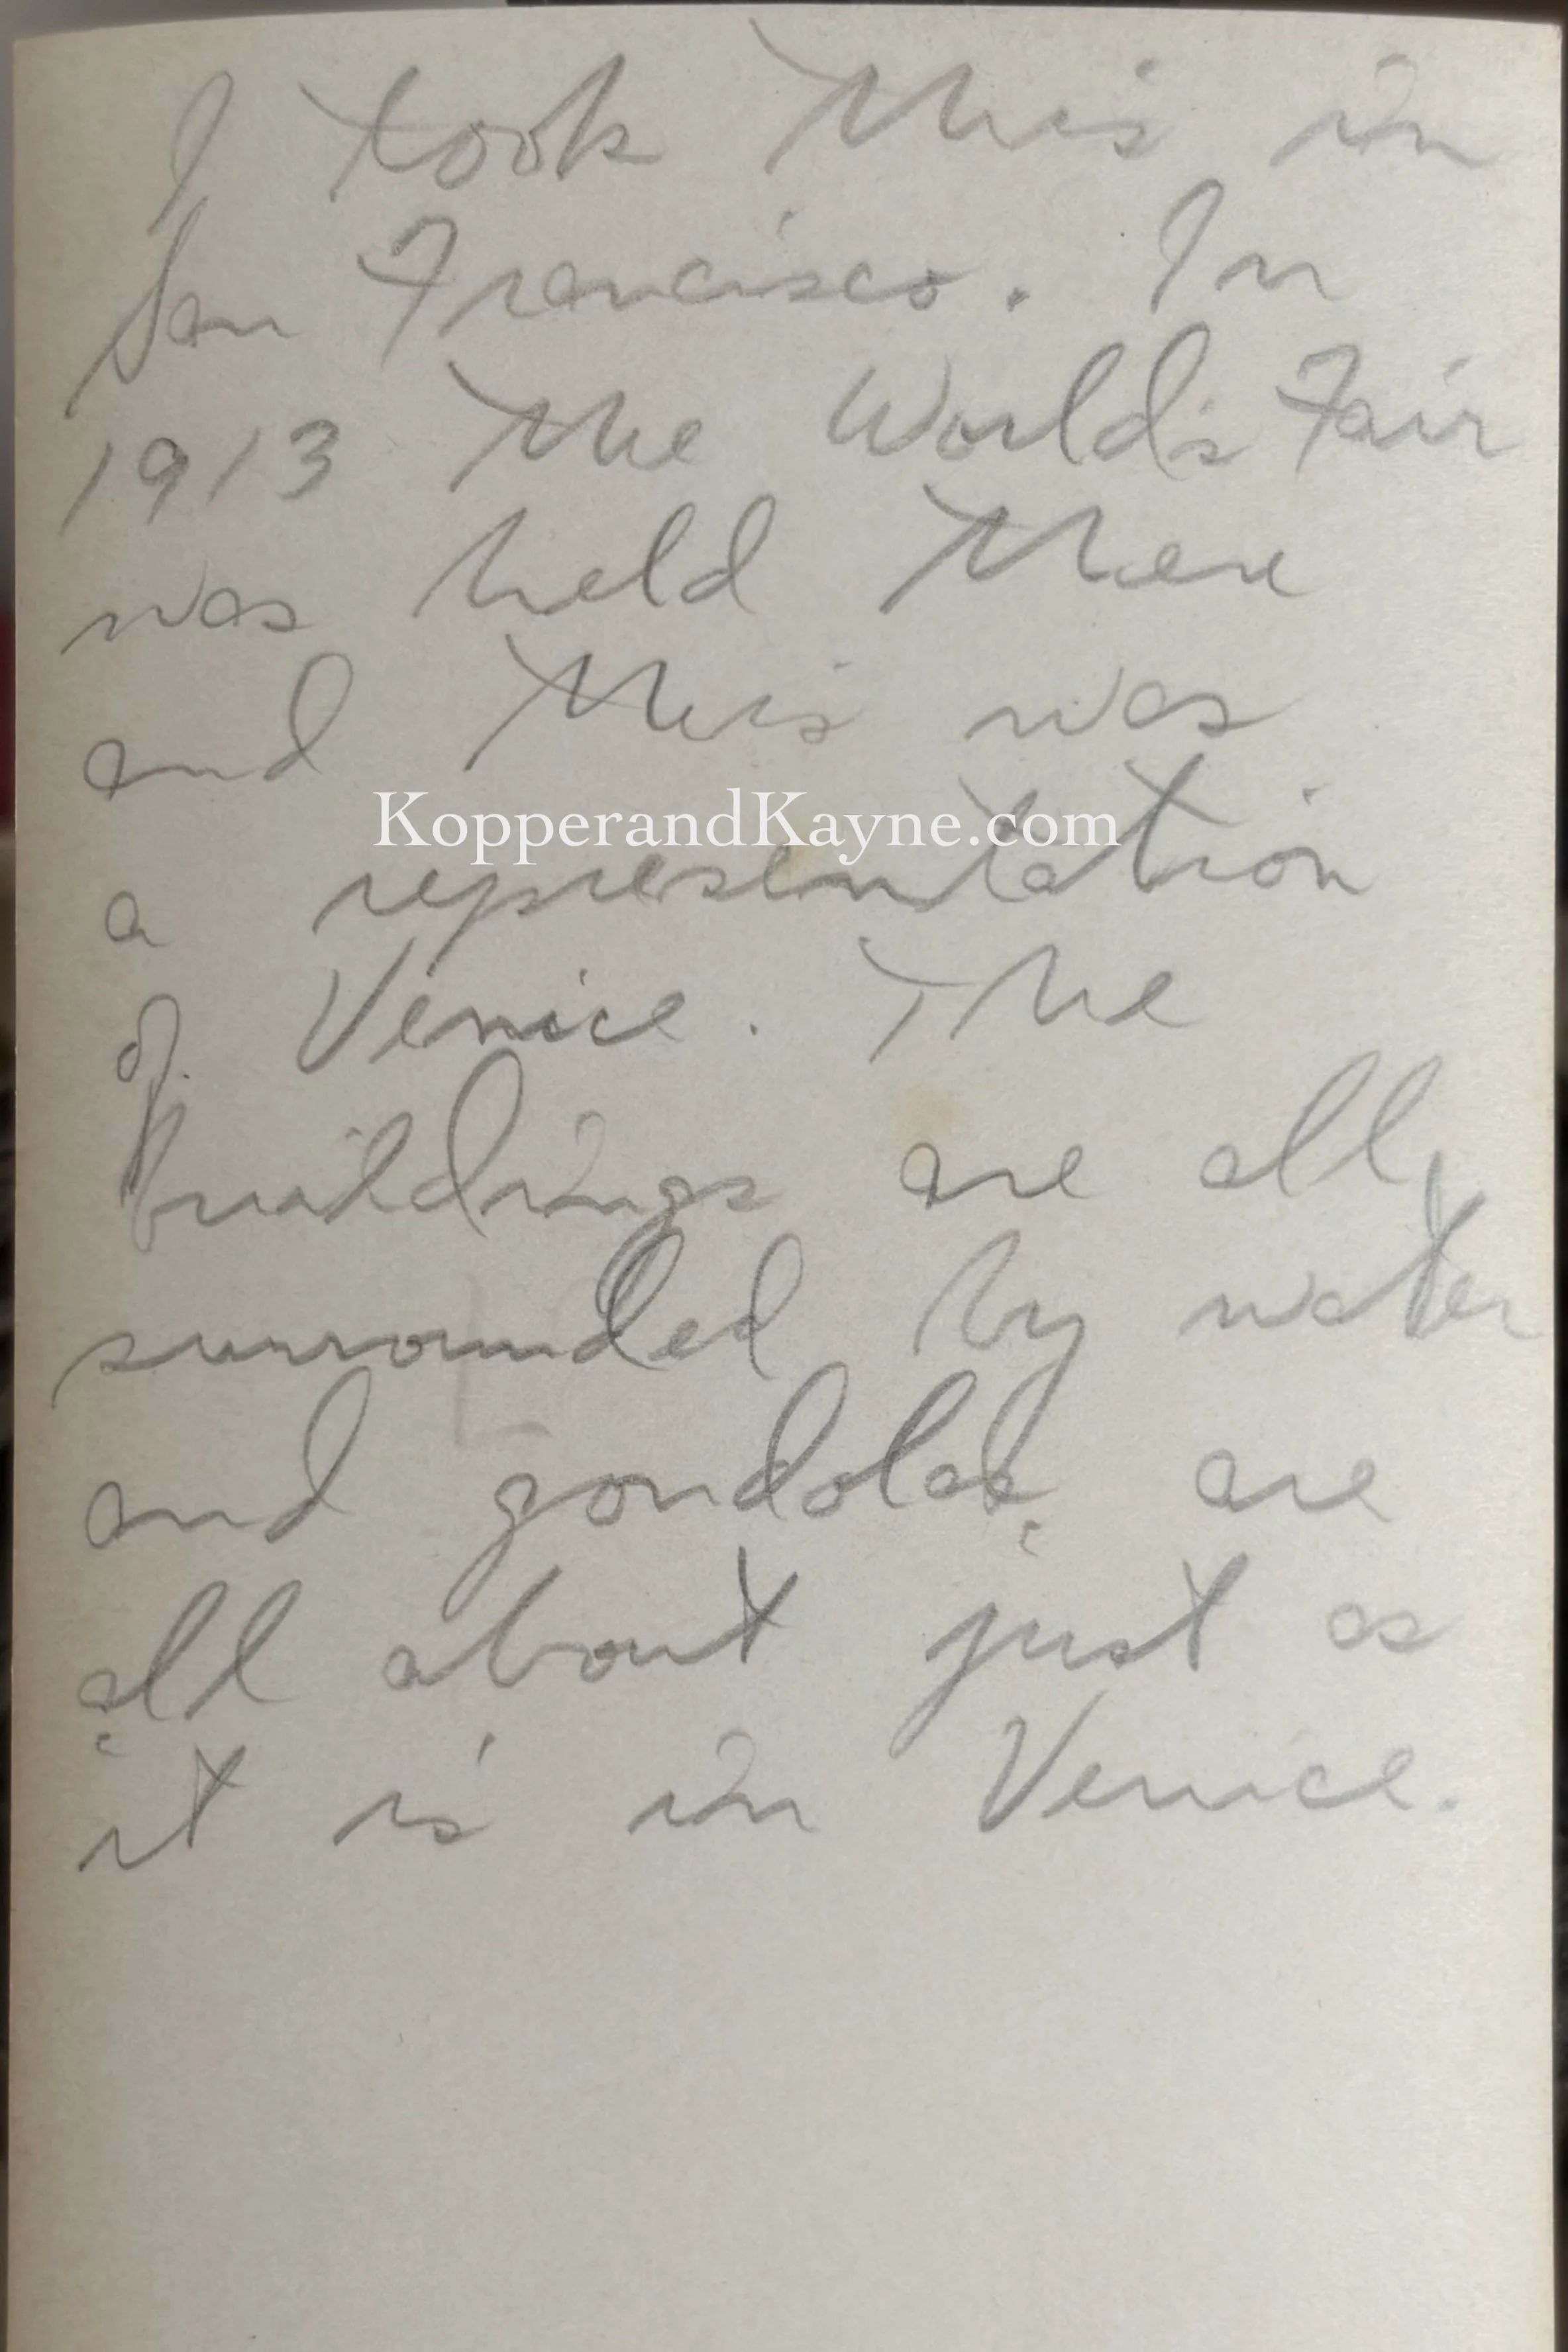 I took this in
San Francisco. In
1913 the World's Fair
was held there
and this was
KopperandKayne.com
a representation
of Venice. The
buildings are all
surrounded by water
and gondolas are
all about just as
it is in Venice.